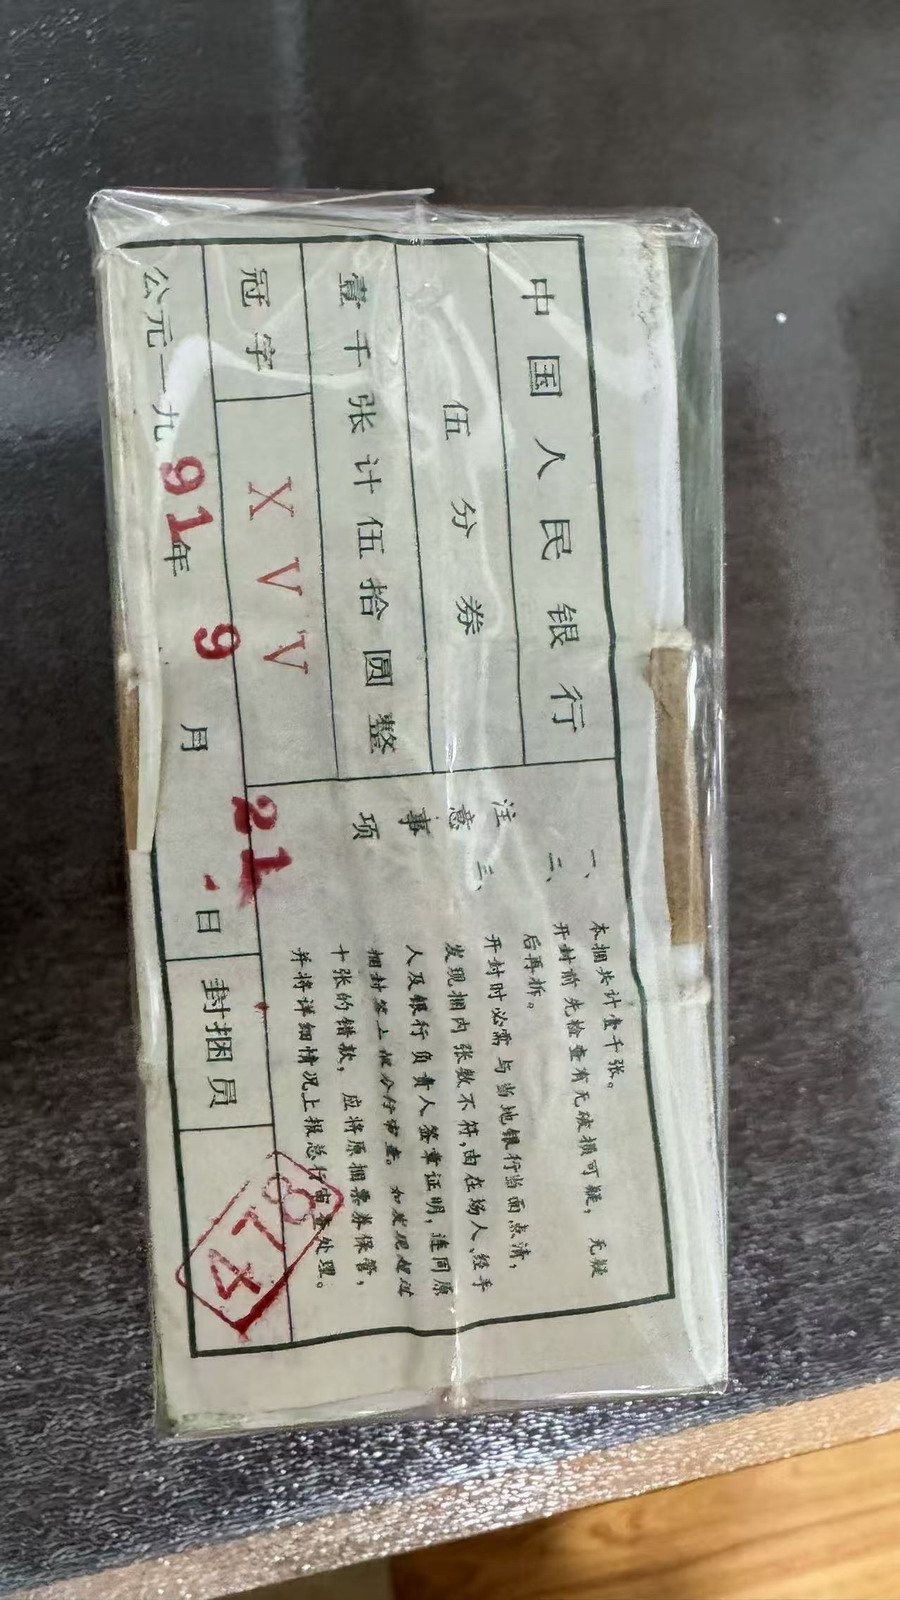 中国人民银行
伍分券
壹千张计伍拾圆整
冠字 X V V
公元一九91年9月21日 封捆员
注意事项
一、本捆共计壹千张。
二、开封前先检查有无破损可疑，无疑
后再拆。
三、开封时必需与当地银行当面点清，
发现捆内张数不符，由在场人、经手
人及银行负责人签章证明，连同原
捆封签上报分行审查。如发现超过
十张的错款，应将原捆票券保管，
并将详细情况上报总行审查处理。